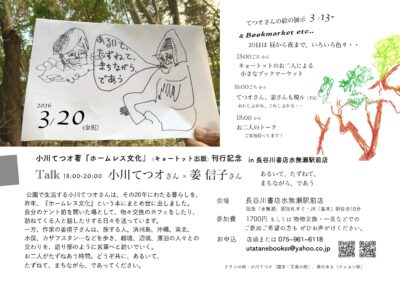 あるいて、
たずねて、
まちながら、
であう
2026
3/20
(金祝)
てつオさんの絵の展示 3/13-
& Bookmarket etc..
20日は 昼から夜まで、いろいろ色々・・
13:00ごろ から
キョートットのお二人による
小さなブックマーケット
16:00ごろ から
てつオさん、姜さんも現ル
18:00 から
お二人のトーク
小川てつオ著『ホームレス文化』(キョートット出版)刊行記念 in 長谷川書店水無瀬駅前店
Talk 18:00-20:00 小川てつオさん×姜 信子さん
あるいて、たずねて、
まちながら、であう
公園で生活する小川てつオさんは、その20年にわたる暮らしを、
昨年、『ホームレス文化』という本にまとめ世に出しました。
自分のテント前を開いた場として、物々交換のカフェをしたり、
訪ねてくる人と話したりする日々を送っています。
一方、作家の姜信子さんは、旅する人。済州島、沖縄、東北、
水俣、カザフスタン…などを歩き、越境、辺境、漂泊の人々との
交わりを、語り部のように言葉へと紡いでいく。
お二人がたずねあう時間。どうぞ共に、あるいて、
たずねて、まちながら、であってください。
会場 長谷川書店水無瀬駅前店
参加費 1700円 もしくは 物物交換・一芸などでの
ご参加ご希望の方も ぜひお声がけください。
お申込 店頭または 075-961-6118
utatanebookss@yahoo.co.jp